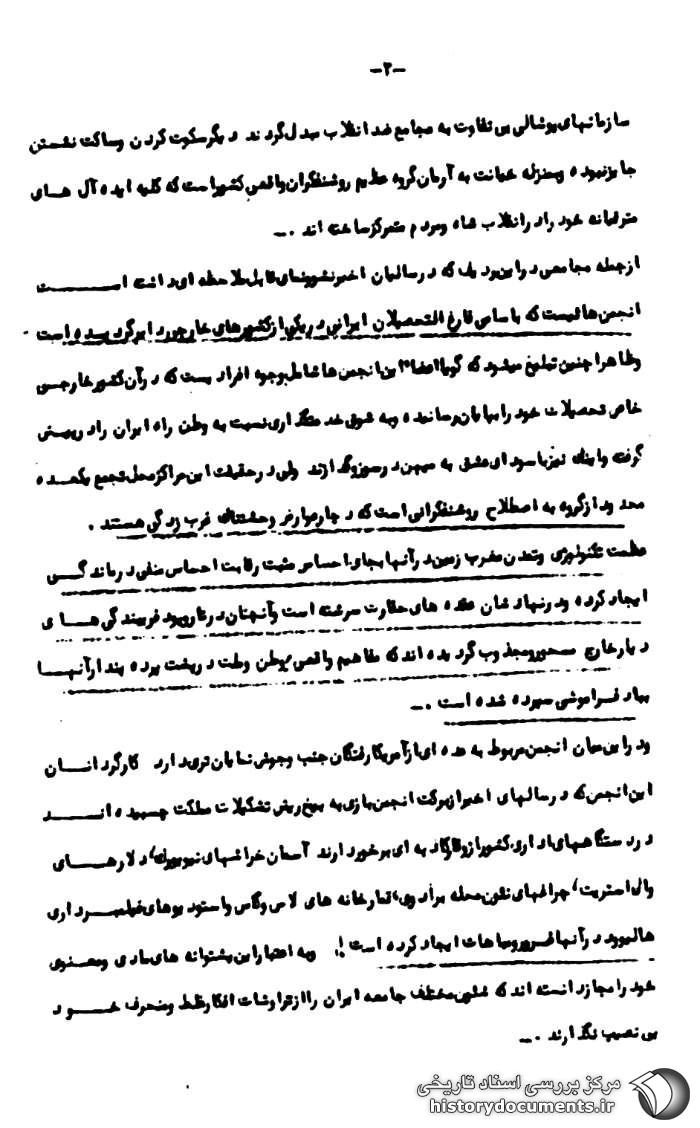 -۲-
سازمانهای پوشالی بی تفاوت به مجامع ضد انقلاب مبدل گردند دیگر سکوت کردن وساکت نشستن
جایز نبوده وبمنزله خیانت به آرمان گروه عظیم روشنفکران واقعی کشور است که کلیه ایده آل هــای
مترقیانه خود را در انقلاب شاه ومردم متمرکز ساخته اند .ــ
ازجمله مجامعی در این ردیف که در سالیان اخیر نشوونمای قابل ملاحظه ای داشته اســــــت
انجمن هائیست که با اسامی فارغ التحصیلان ایرانی در یکی از کشورهای خارجی دایر گردیـده است
وظاهرا چنین تبلیغ میشود که گویا اعضاء این انجمن ها شامل بوجوه افرادیست که در آن کشور خارجــی
خاص تحصیلات خود را بپایان رسانیده وبه شوق خدمتگذاری نسبت به وطن راه ایران را در پیــش
گرفته واینک نیز با سودای عشق به میهن در سوز وگدازند ولی در حقیقت این مراکز محل تجمع یکعــده
معدود از گروه به اصطلاح روشنفکرانی است که دچار عوارض وحشتناک غرب زدگی هستند .
عظمت تکنولوژی وتمدن مغرب زمین در آنها بجای احساس مثبت رقابت احساس منفی درماندگــی
ایجاد کرده ودر نهادشان عقده های حقارت سرشته است وآنچنان در تاروپود فریبندگی هـــای
دیار خارج مسحور ومجذوب گردیده اند که مفاهیم واقعی میهن وملت در پشت پرده پندار آنهــا
بباد فــراموشی سپرده شده است .ــ
ودر این میان انجمن مربوط به عده ای از آمریکارفتگان جنب وجوش نمایان تری دارد کارگردانــان
این انجمن که در سالهای اخیر از برکت انجمن بازی به بیخ ریش تشکیلات مملکت چسبیده انـــد
در دستگاههای اداری کشور از و قارکاذبه ای برخوردارند آسمان خراشهای نیویورک، دلارهــــای
وال استریت، چراغهای نئون محله برادوی، قمارخانه های لاس وگاس واستودیوهای فیلمبــرداری
هالیوود در آنها غرور ومباهات ایجاد کرده است !. وبه اعتبار این پشتوانه های مادی ومعنــوی
خود را مجاز دانسته اند که شئون مختلف جامعه ایران را از تراوشات افکار غلط ومنحرف خـــود
بی نصیب نگذارند .ــ
مرکز بررسی اسناد تاریخی
historydocuments.ir